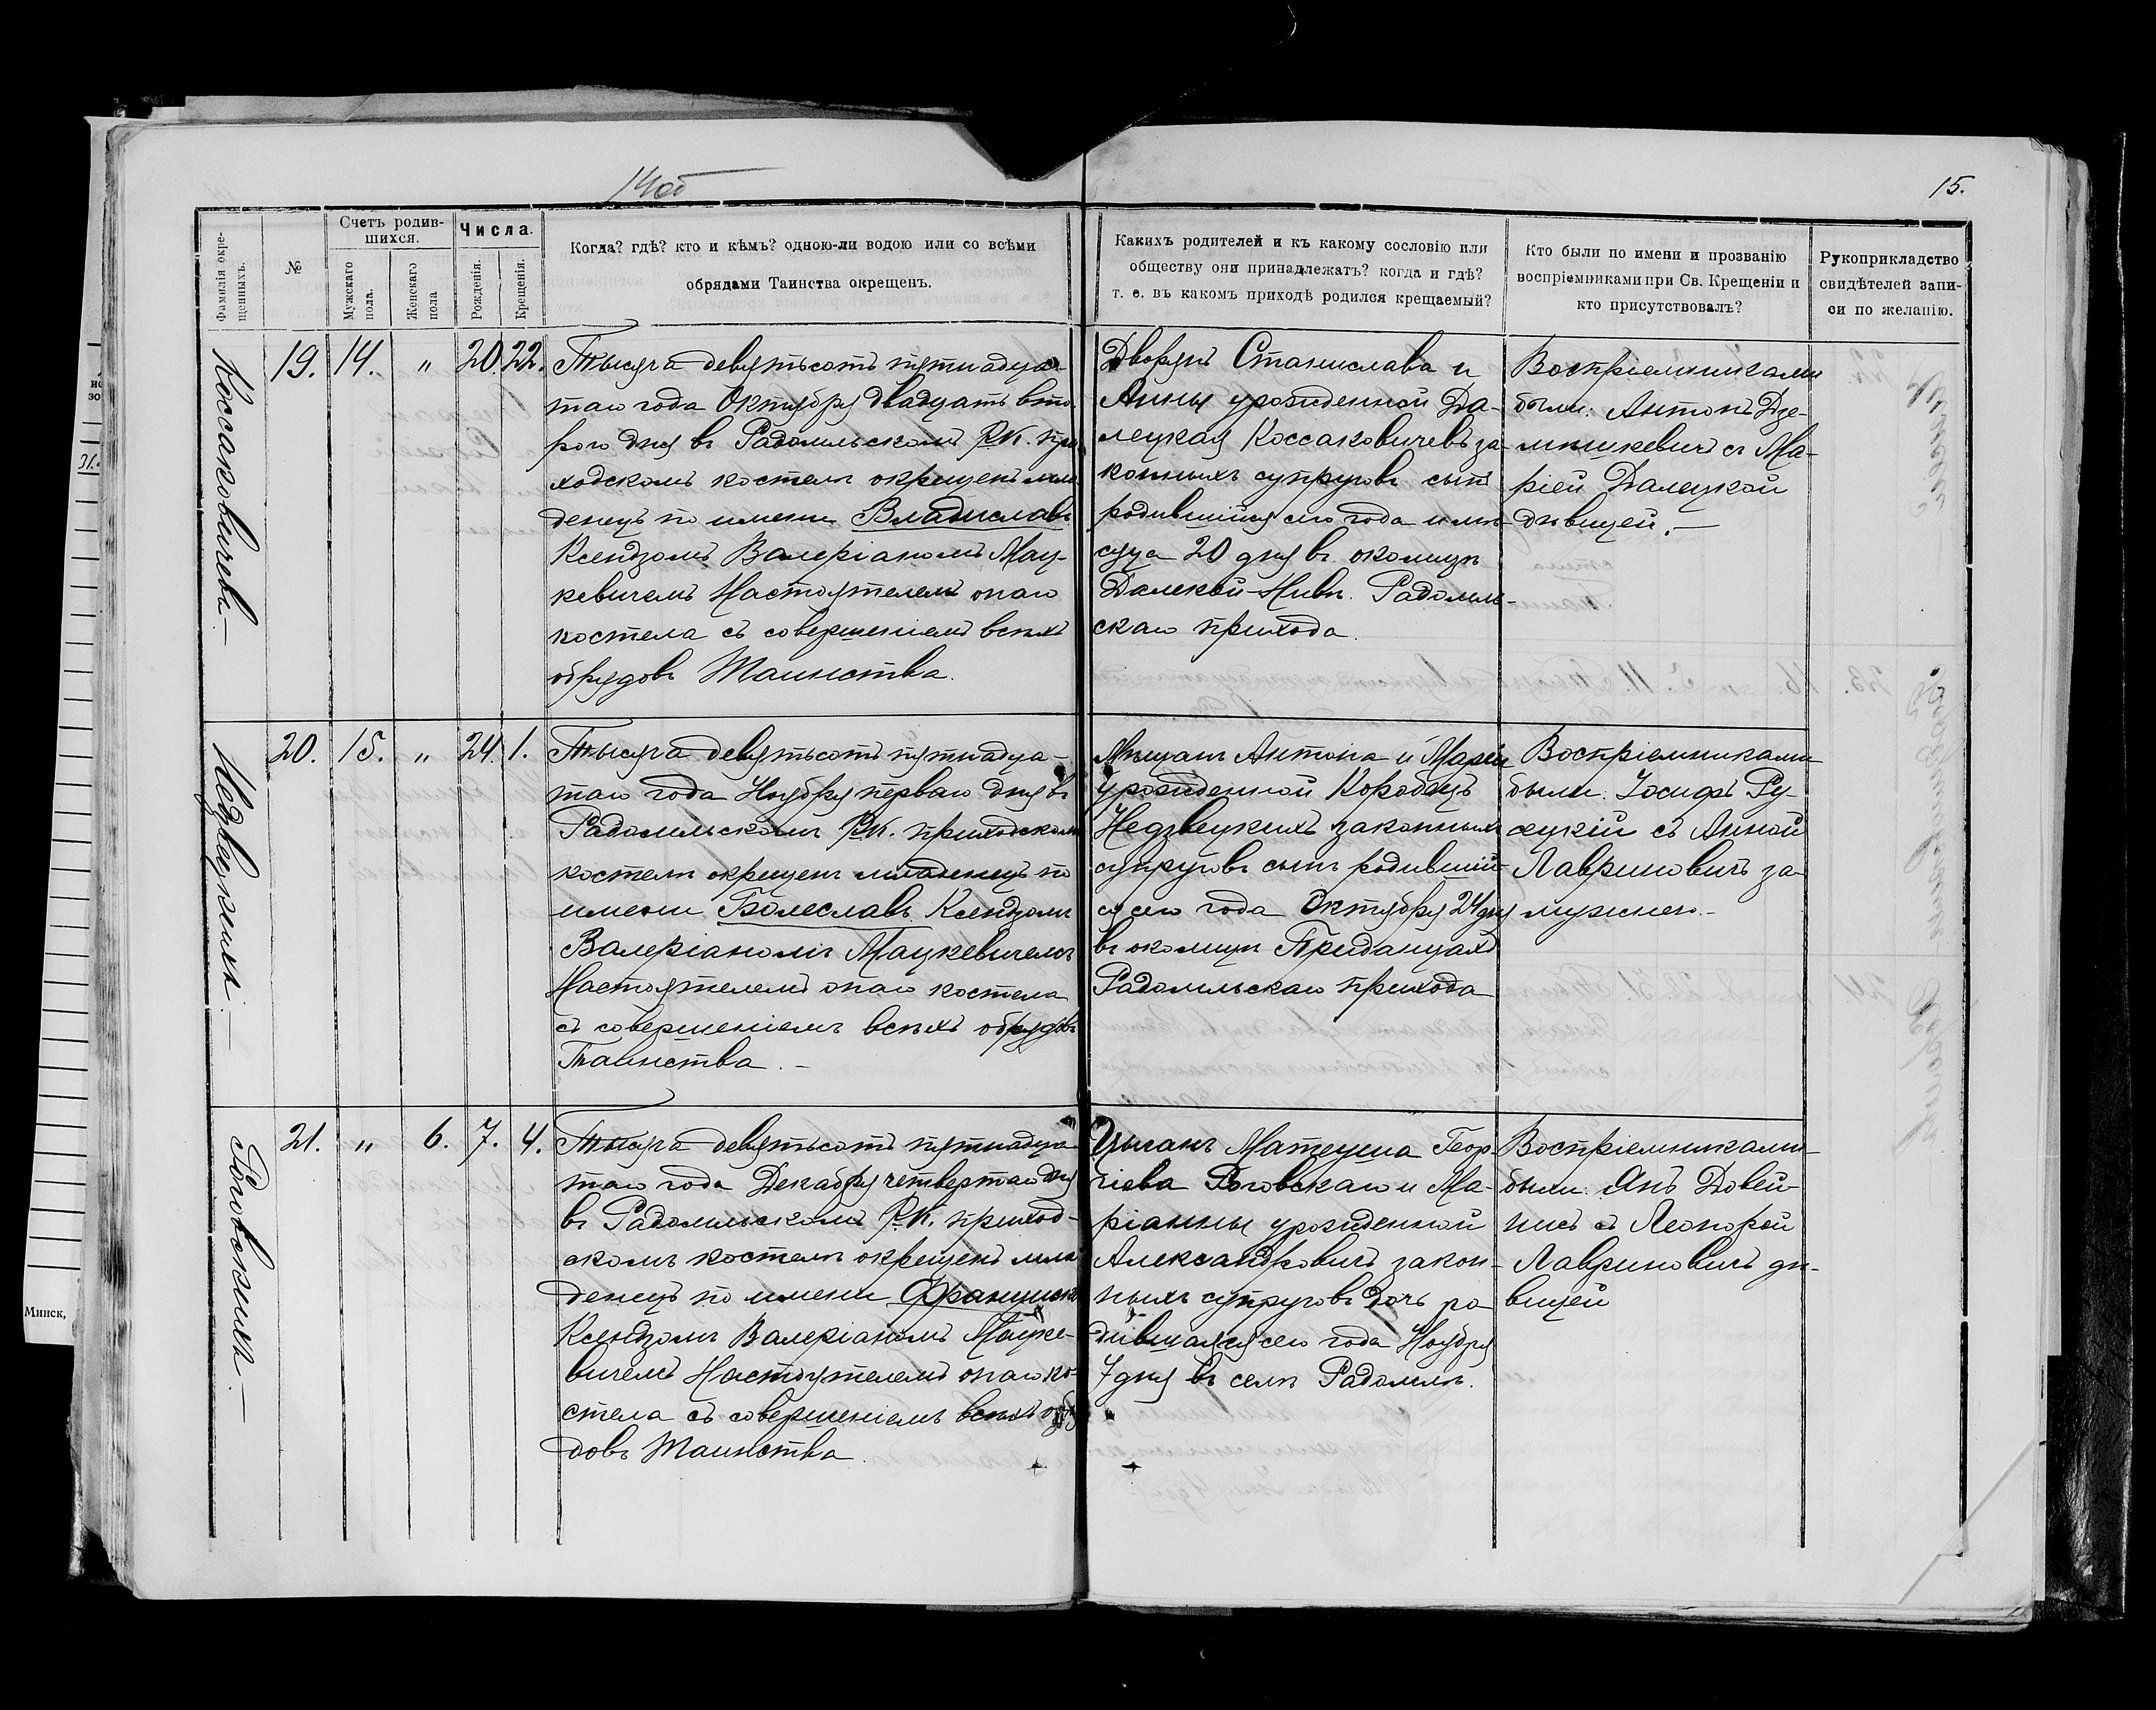 14об
15.
Фамилія окре-
щенныхъ.
№
Счетъ родив-
шихся.
Мужскаго
пола.
Женскаго
пола
Числа.
Рожденія.
Крещенія.
Когда? гдѣ? кто и кѣмъ? одною-ли водою или со всѣми
обрядами Таинства окрещенъ.
Какихъ родителей и къ какому сословію или
обществу они принадлежатъ? когда и гдѣ?
т. е. въ какомъ приходѣ родился крещаемый?
Кто были по имени и прозванію
воспріемниками при Св. Крещеніи и
кто присутствовалъ?
Рукоприкладство
свидѣтелей запи-
си по желанію.
Коссаковичевъ.—
19.
14.
"
20.
22.
Тысяча девятьсотъ пятнадца-
таго года Октября двадцать вто-
рого дня въ Радомльскомъ Р.К. при-
ходскомъ костелѣ окрещенъ мла-
денецъ по имени Владиславъ
Ксендзомъ Валеріаномъ Мац-
кевичемъ Настоятелемъ онаго
костела съ совершеніемъ всѣхъ
обрядовъ Таинства.
Дворянъ Станислава и
Анны урожденной Да-
лецкая Коссаковичевъ за-
конныхъ супруговъ сынъ
родившійся сего года и мѣ-
сяца 20 дня въ околицѣ
Далекой-Нивѣ. Радомль-
скаго прихода.
Воспріемниками
были: Антонъ Дзе-
мѣшкевичъ съ Ма-
ріей Далецкой
дѣвицей.—
Недзвецкихъ.—
20.
15.
"
24.
1.
Тысяча девятьсотъ пятнадца-
таго года Ноября перваго дня въ
Радомльскомъ Р.К. приходскомъ
костелѣ окрещенъ младенецъ по
имени Болеславъ Ксендзомъ
Валеріаномъ Мацкевичемъ
Настоятелемъ онаго костела
съ совершеніемъ всѣхъ обрядовъ
Таинства.—
Мѣщанъ Антона и Маріи
урожденной Коробецъ
Недзвецкихъ законныхъ
супруговъ сынъ родившій-
ся сего года Октября 24 дня
въ околицѣ Приданцахъ
Радомльскаго прихода
Воспріемниками
были. Іосифъ Ру-
сецкій съ Анной
Лавриновичъ за-
мужнею.—
Роговскихъ.—
21.
"
6.
7.
4.
Тысяча девятьсотъ пятнадца-
таго года Декабря четвертаго дня
въ Радомльскомъ Р.К. приход-
скомъ костелѣ окрещенъ мла-
денецъ по имени Франциска
Ксендзомъ Валеріаномъ Мацке-
вичемъ Настоятелемъ онаго ко-
стела съ совершеніемъ всѣхъ обря-
довъ Таинства
Цыганъ Матеуша Геор-
гіева Роговскаго и Ма-
ріанны урожденной
Александровичъ закон-
ныхъ супруговъ дочь ро-
дившаяся сего года Ноября
7 дня въ селѣ Радомлѣ.
Воспріемниками
были: Янъ Довей-
нисъ съ Леонорой
Лавриновичъ дѣ-
вицей
Минск,